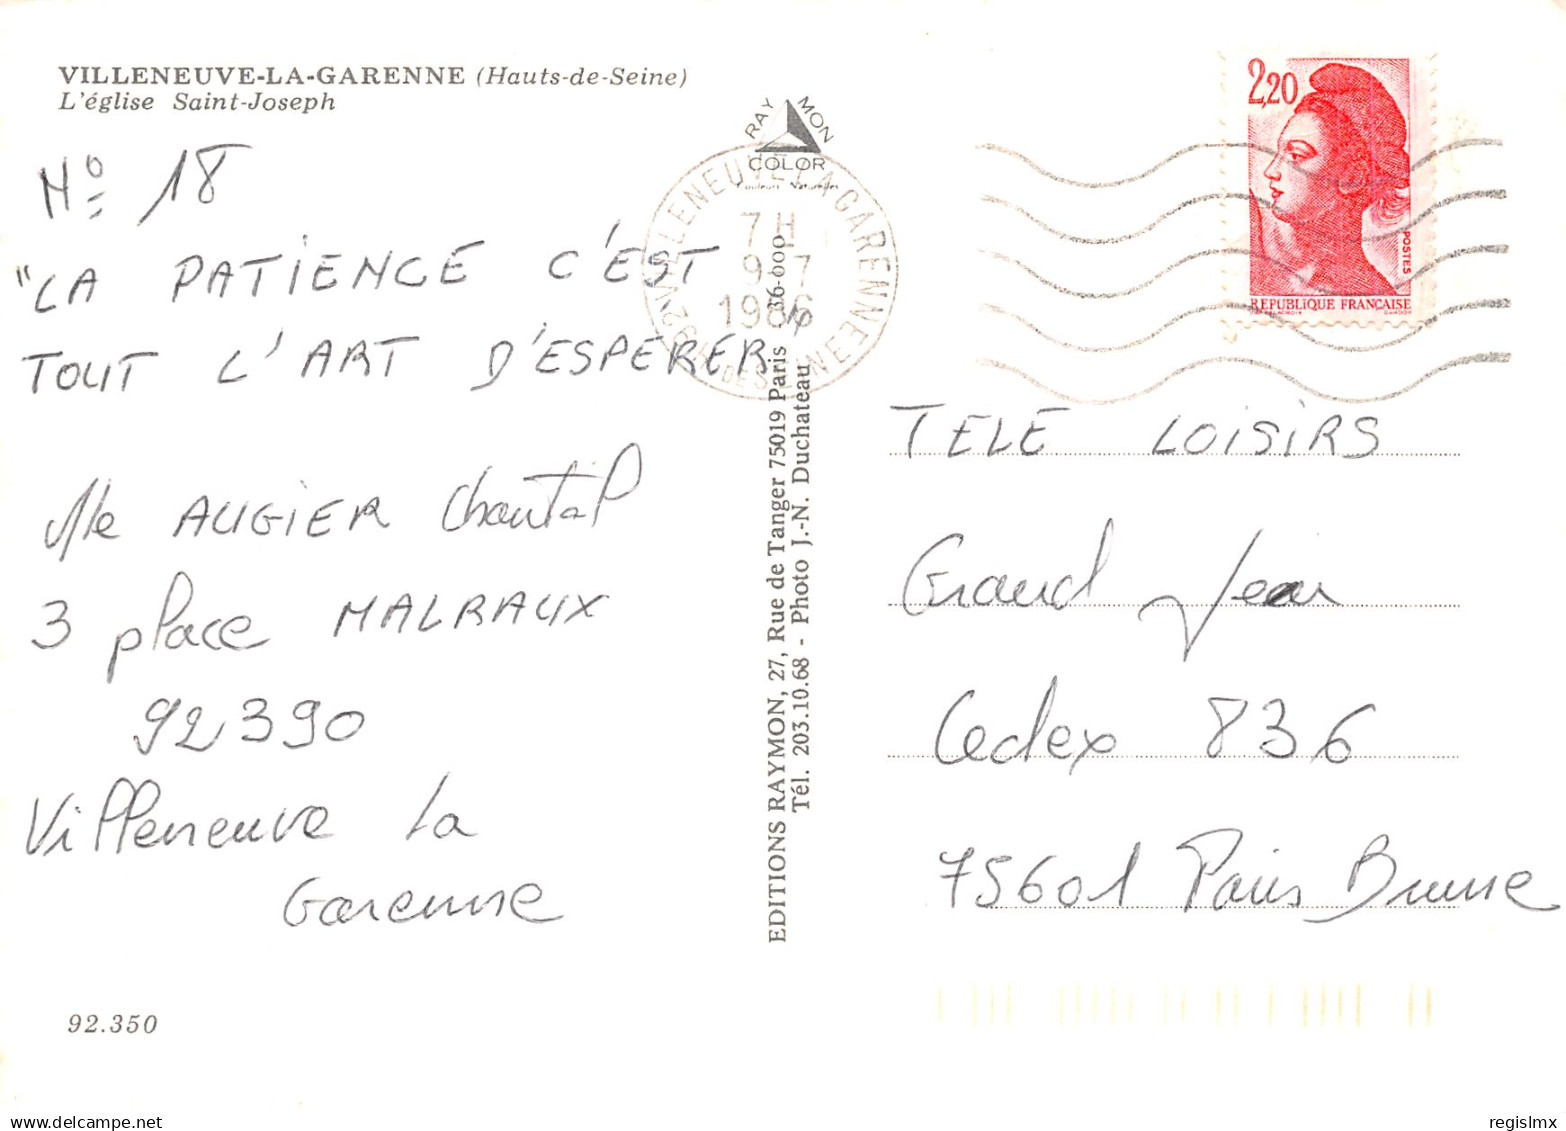 VILLENEUVE-LA-GARENNE (Hauts-de-Seine)
L'église Saint-Joseph
N° 18
"LA PATIENCE C'EST
TOUT L'ART D'ESPERER"
Mlle AUGIER Chantal
3 place MALRAUX
92390
Villeneuve la
Garenne
92.350
RAY MON
COLOR
Couleurs Naturelles
92 VILLENEUVE-LA-GARENNE
7H
9-7
1986
HTS DE SEINE
EDITIONS RAYMON, 27, Rue de Tanger 75019 Paris 36-000
Tél. 203.10.68 - Photo J.-N. Duchateau
2,20
POSTES
REPUBLIQUE FRANÇAISE
GANDON
TELE LOISIRS
Grand Jean
Cedex 836
75601 Paris Brune
regislmx
delcampe.net